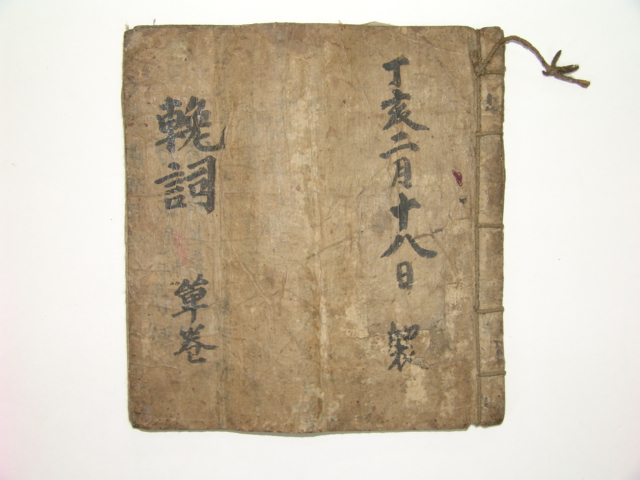 丁亥二月十八日 製
輓詞 草卷